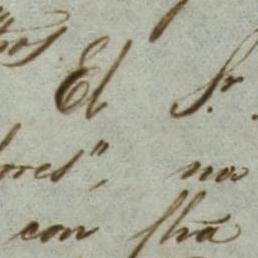 El Sr.
ores", no
con fha